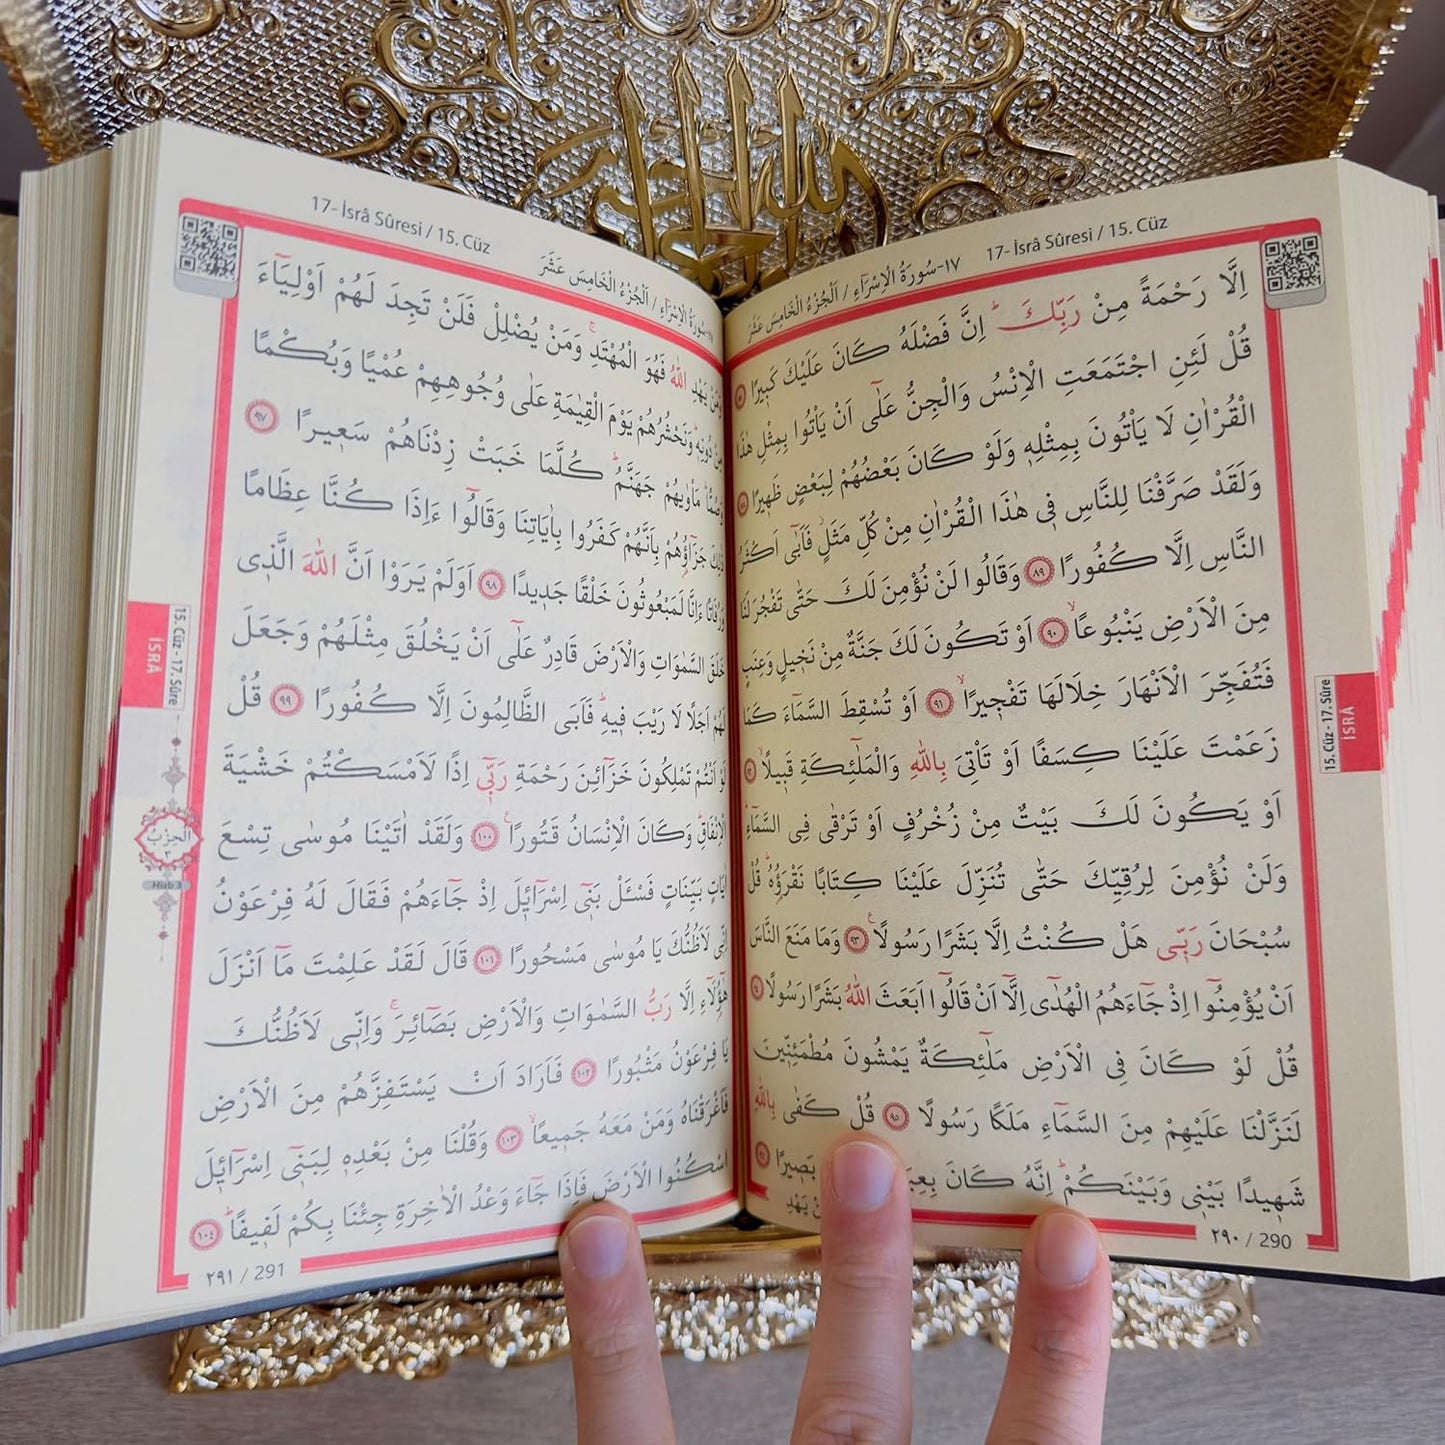 17- İsrâ Sûresi / 15. Cüz
١٧-سُورَةُ الْاِسْرَٓاءِ / اَلْجُزْءُ الْخَامِسَ عَشَرَ
اِلَّا رَحْمَةً مِنْ رَبِّكَۜ اِنَّ فَضْلَهُ كَانَ عَلَيْكَ كَب۪يرًا ﴿٨٧﴾
قُلْ لَئِنِ اجْتَمَعَتِ الْاِنْسُ وَالْجِنُّ عَلٰٓى اَنْ يَأْتُوا بِمِثْلِ هٰذَا
الْقُرْاٰنِ لَا يَأْتُونَ بِمِثْلِه۪ وَلَوْ كَانَ بَعْضُهُمْ لِبَعْضٍ ظَه۪يرًا ﴿٨٨﴾
وَلَقَدْ صَرَّفْنَا لِلنَّاسِ ف۪ي هٰذَا الْقُرْاٰنِ مِنْ كُلِّ مَثَلٍۘ فَاَبٰٓى اَكْثَرُ
النَّاسِ اِلَّا كُفُورًا ﴿٨٩﴾ وَقَالُوا لَنْ نُؤْمِنَ لَكَ حَتّٰى تَفْجُرَ لَنَا
مِنَ الْاَرْضِ يَنْبُوعًاۙ ﴿٩٠﴾ اَوْ تَكُونَ لَكَ جَنَّةٌ مِنْ نَخ۪يلٍ وَعِنَبٍ
فَتُفَجِّرَ الْاَنْهَارَ خِلَالَهَا تَفْج۪يرًاۙ ﴿٩١﴾ اَوْ تُسْقِطَ السَّمَٓاءَ كَمَا
زَعَمْتَ عَلَيْنَا كِسَفًا اَوْ تَأْتِيَ بِاللّٰهِ وَالْمَلٰٓئِكَةِ قَب۪يلًاۙ ﴿٩٢﴾
اَوْ يَكُونَ لَكَ بَيْتٌ مِنْ زُخْرُفٍ اَوْ تَرْقٰى فِي السَّمَٓاءِۜ
وَلَنْ نُؤْمِنَ لِرُقِيِّكَ حَتّٰى تُنَزِّلَ عَلَيْنَا كِتَابًا نَقْرَؤُ۬هُۜ قُلْ
سُبْحَانَ رَبّ۪ي هَلْ كُنْتُ اِلَّا بَشَرًا رَسُولًاۚ ﴿٩٣﴾ وَمَا مَنَعَ النَّاسَ
اَنْ يُؤْمِنُٓوا اِذْ جَٓاءَهُمُ الْهُدٰٓى اِلَّٓا اَنْ قَالُٓوا اَبَعَثَ اللّٰهُ بَشَرًا رَسُولًا ﴿٩٤﴾
قُلْ لَوْ كَانَ فِي الْاَرْضِ مَلٰٓئِكَةٌ يَمْشُونَ مُطْمَئِنّ۪ينَ
لَنَزَّلْنَا عَلَيْهِمْ مِنَ السَّمَٓاءِ مَلَكًا رَسُولًا ﴿٩٥﴾ قُلْ كَفٰى بِاللّٰهِ
شَه۪يدًا بَيْن۪ي وَبَيْنَكُمْۜ اِنَّهُ كَانَ بَص۪يرًا ﴿٩٦﴾
يَهْدِ
٢٩٠ / 290
15. Cüz - 17. Sûre
İSRÂ
17- İsrâ Sûresi / 15. Cüz
١٧-سُورَةُ الْاِسْرَٓاءِ / اَلْجُزْءُ الْخَامِسَ عَشَرَ
وَمَنْ يَهْدِ اللّٰهُ فَهُوَ الْمُهْتَدِۚ وَمَنْ يُضْلِلْ فَلَنْ تَجِدَ لَهُمْ اَوْلِيَٓاءَ
مِنْ دُونِه۪ۜ وَنَحْشُرُهُمْ يَوْمَ الْقِيٰمَةِ عَلٰى وُجُوهِهِمْ عُمْيًا وَبُكْمًا
وَصُمًّاۜ مَأْوٰيهُمْ جَهَنَّمُۜ كُلَّمَا خَبَتْ زِدْنَاهُمْ سَع۪يرًا ﴿٩٧﴾
ذٰلِكَ جَزَٓاؤُ۬هُمْ بِاَنَّهُمْ كَفَرُوا بِاٰيَاتِنَا وَقَالُٓوا ءَاِذَا كُنَّا عِظَامًا
وَرُفَاتًا ءَاِنَّا لَمَبْعُوثُونَ خَلْقًا جَد۪يدًا ﴿٩٨﴾ اَوَلَمْ يَرَوْا اَنَّ اللّٰهَ الَّذ۪ي
خَلَقَ السَّمٰوَاتِ وَالْاَرْضَ قَادِرٌ عَلٰٓى اَنْ يَخْلُقَ مِثْلَهُمْ وَجَعَلَ
لَهُمْ اَجَلًا لَا رَيْبَ ف۪يهِۜ فَاَبَى الظَّالِمُونَ اِلَّا كُفُورًا ﴿٩٩﴾ قُلْ
لَوْ اَنْتُمْ تَمْلِكُونَ خَزَٓائِنَ رَحْمَةِ رَبّ۪ٓي اِذًا لَاَمْسَكْتُمْ خَشْيَةَ
الْاِنْفَاقِۜ وَكَانَ الْاِنْسَانُ قَتُورًاۚ ﴿١٠٠﴾ وَلَقَدْ اٰتَيْنَا مُوسٰى تِسْعَ
اٰيَاتٍ بَيِّنَاتٍ فَسْـَٔلْ بَن۪ٓي اِسْرَٓائ۪لَ اِذْ جَٓاءَهُمْ فَقَالَ لَهُ فِرْعَوْنُ
اِنّ۪ي لَاَظُنُّكَ يَا مُوسٰى مَسْحُورًا ﴿١٠١﴾ قَالَ لَقَدْ عَلِمْتَ مَٓا اَنْزَلَ
هٰٓؤُ۬لَٓاءِ اِلَّا رَبُّ السَّمٰوَاتِ وَالْاَرْضِ بَصَٓائِرَۚ وَاِنّ۪ي لَاَظُنُّكَ
يَا فِرْعَوْنُ مَثْبُورًا ﴿١٠٢﴾ فَاَرَادَ اَنْ يَسْتَفِزَّهُمْ مِنَ الْاَرْضِ
فَاَغْرَقْنَاهُ وَمَنْ مَعَهُ جَم۪يعًاۙ ﴿١٠٣﴾ وَقُلْنَا مِنْ بَعْدِه۪ لِبَن۪ٓي اِسْرَٓائ۪لَ
اسْكُنُوا الْاَرْضَ فَاِذَا جَٓاءَ وَعْدُ الْاٰخِرَةِ جِئْنَا بِكُمْ لَف۪يفًاۜ ﴿١٠٤﴾
٢٩١ / 291
15. Cüz - 17. Sûre
İSRÂ
الْحِزْبُ
٣
Hizb 3